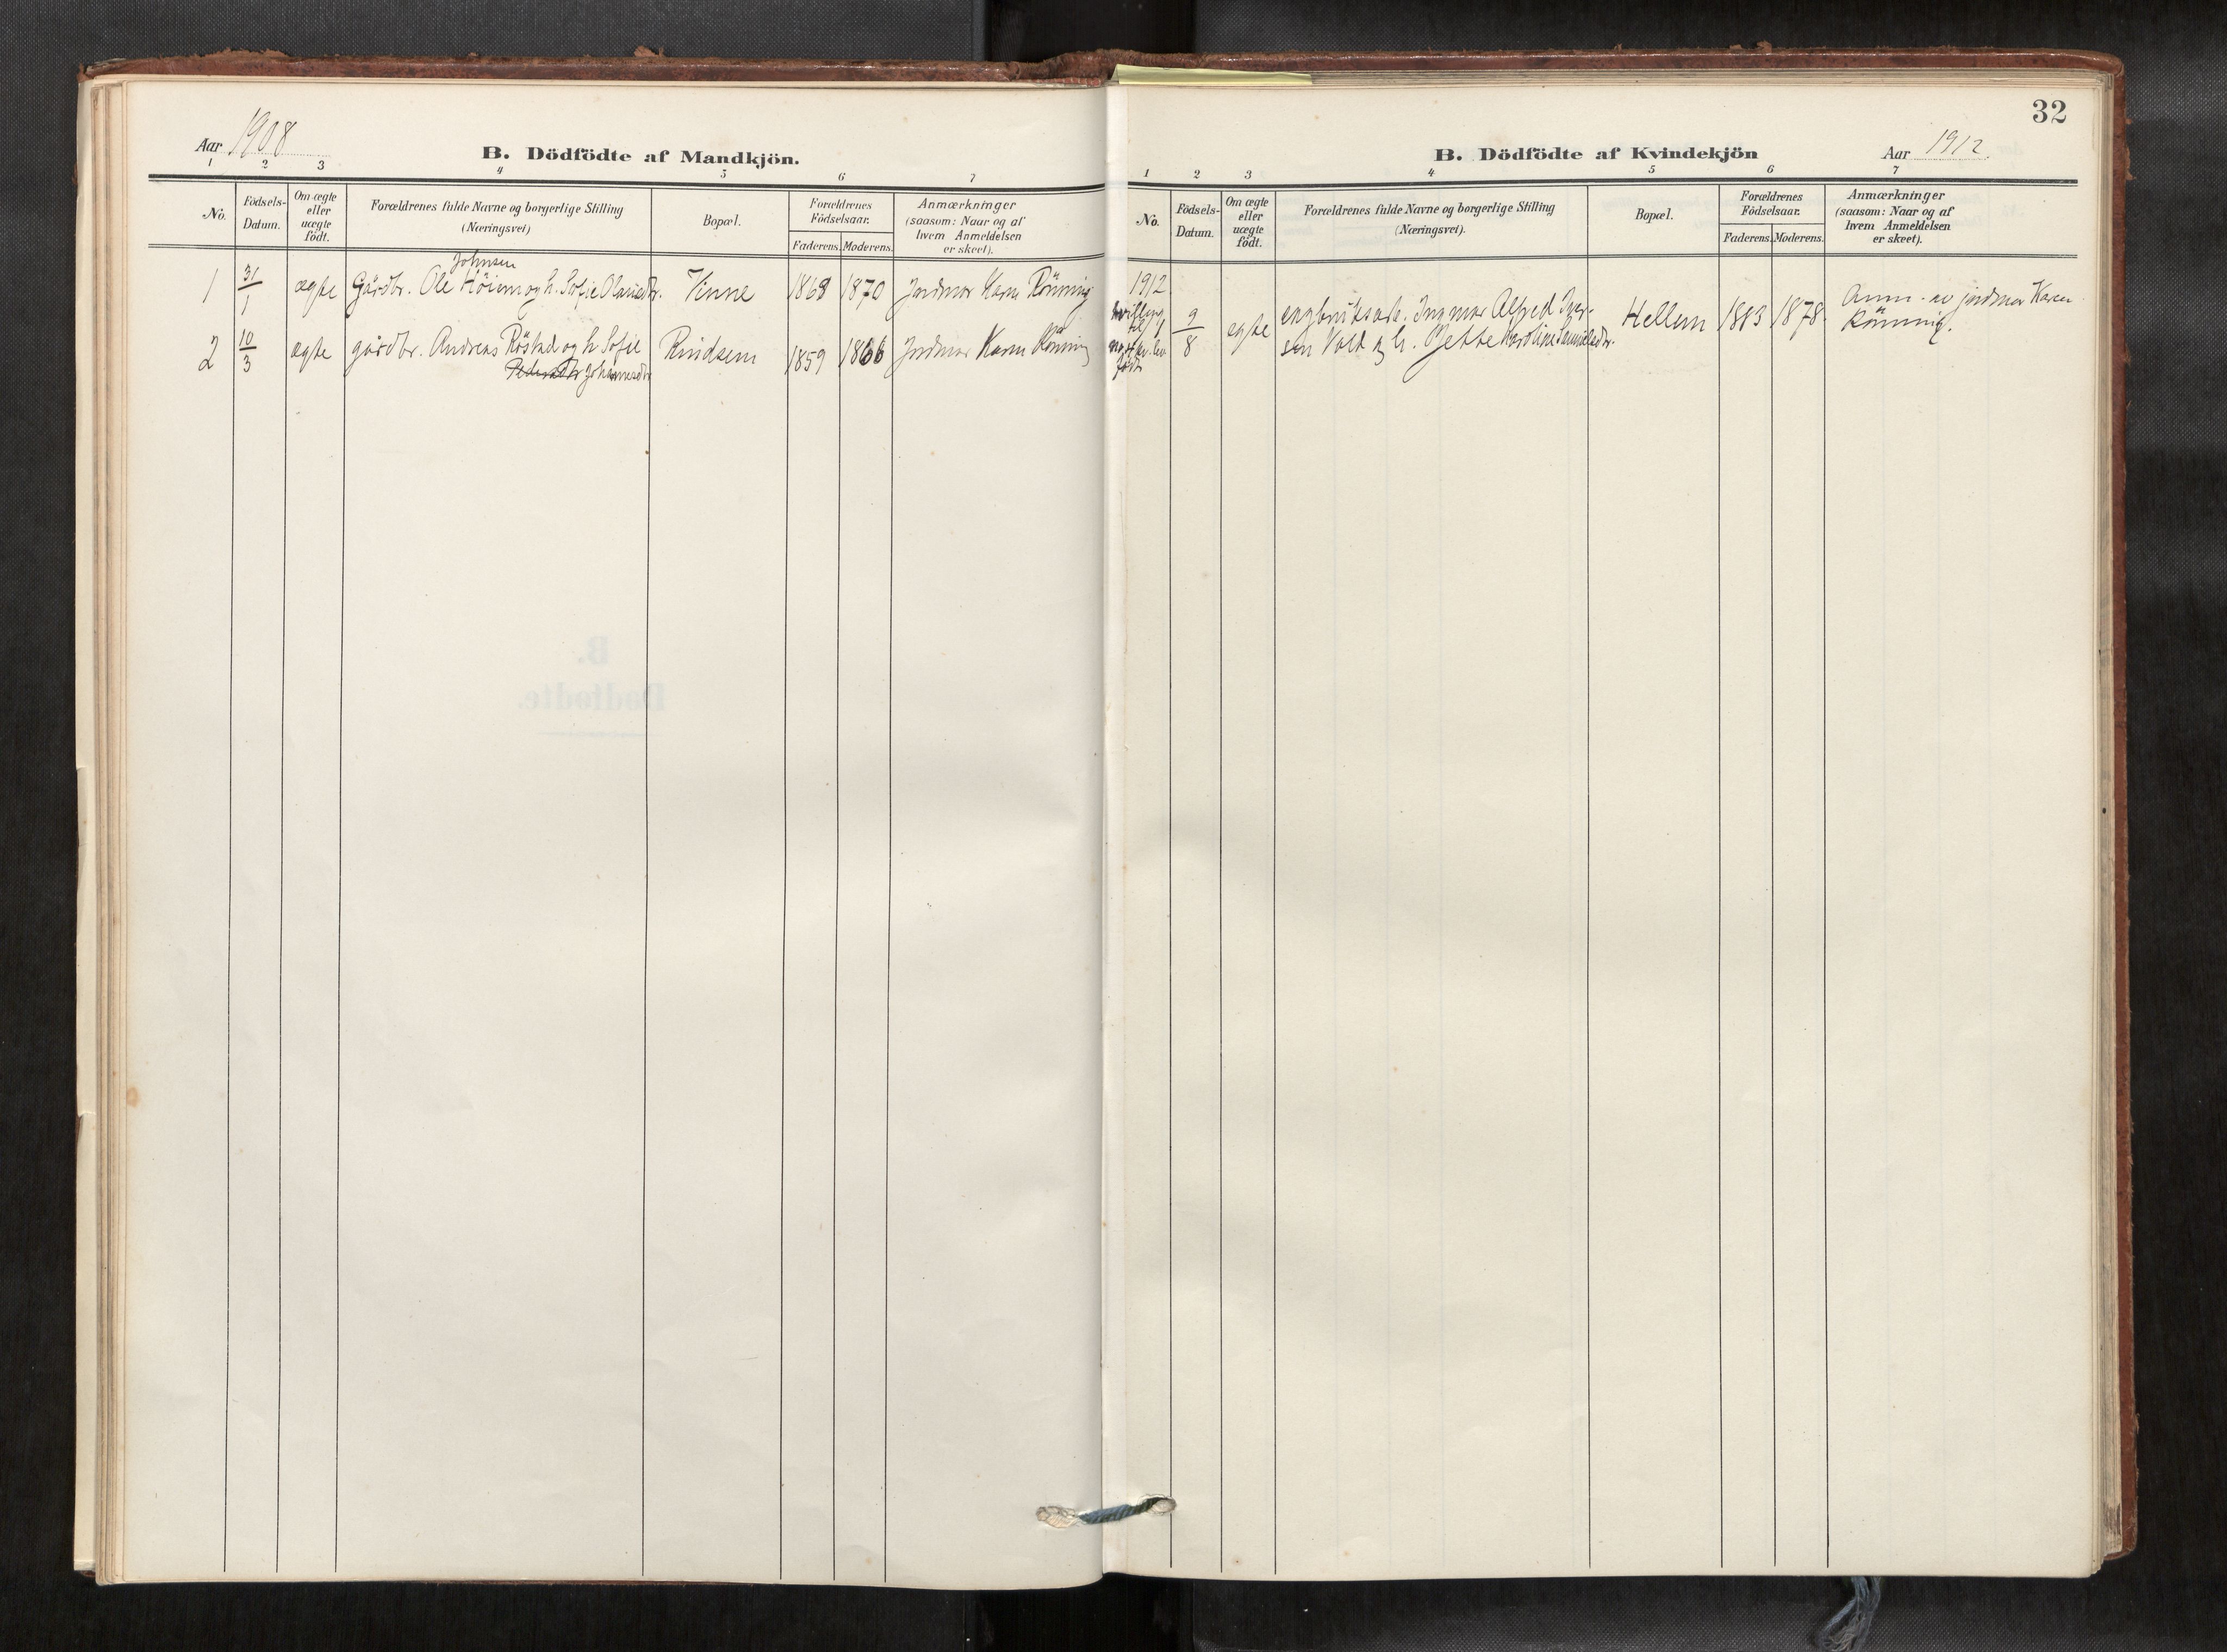 Aar 1908
B. Dödfödte af Mandkjön.
1 2 3 4 5 6 7
No.
Födsels-
Datum.
Om ægte
eller
uægte
födt.
Forældrenes fulde Navne og borgerlige Stilling
(Næringsvei)
Bopæl.
Forældrenes
Födselsaar.
Faderens. Moderens.
Anmærkninger
(saasom: Naar og af
hvem Anmeldelsen
er skeet).
Johnsen
1 31/1 ægte Gårdbr. Ole Höiem og h. Sofie Olausdtr. Vinne 1868 1870 Jordmor Karen Rönning
2 10/3 ægte gårdbr. Andreas Röstad og h Sofie Rindsem 1859 1866 Jordmor Karen Rönning
Johannesdtr
32
B. Dödfödte af Kvindekjön
Aar 1912.
1 2 3 4 5 6 7
No.
Födsels-
Datum.
Om ægte
eller
uægte
födt.
Forældrenes fulde Navne og borgerlige Stilling
(Næringsvei).
Bopæl.
Forældrenes
Födselsaar.
Faderens. Moderens.
Anmærkninger
(saasom: Naar og af
hvem Anmeldelsen
er skeet).
1912
tvilling
til
no 4 kv. lev.
födte
9/8 egte Ingmar Alfred Iver-
sen Vold og h. Jette Karoline Hellem 1883 1878. Anm. av jordmor Karen
Rönning.